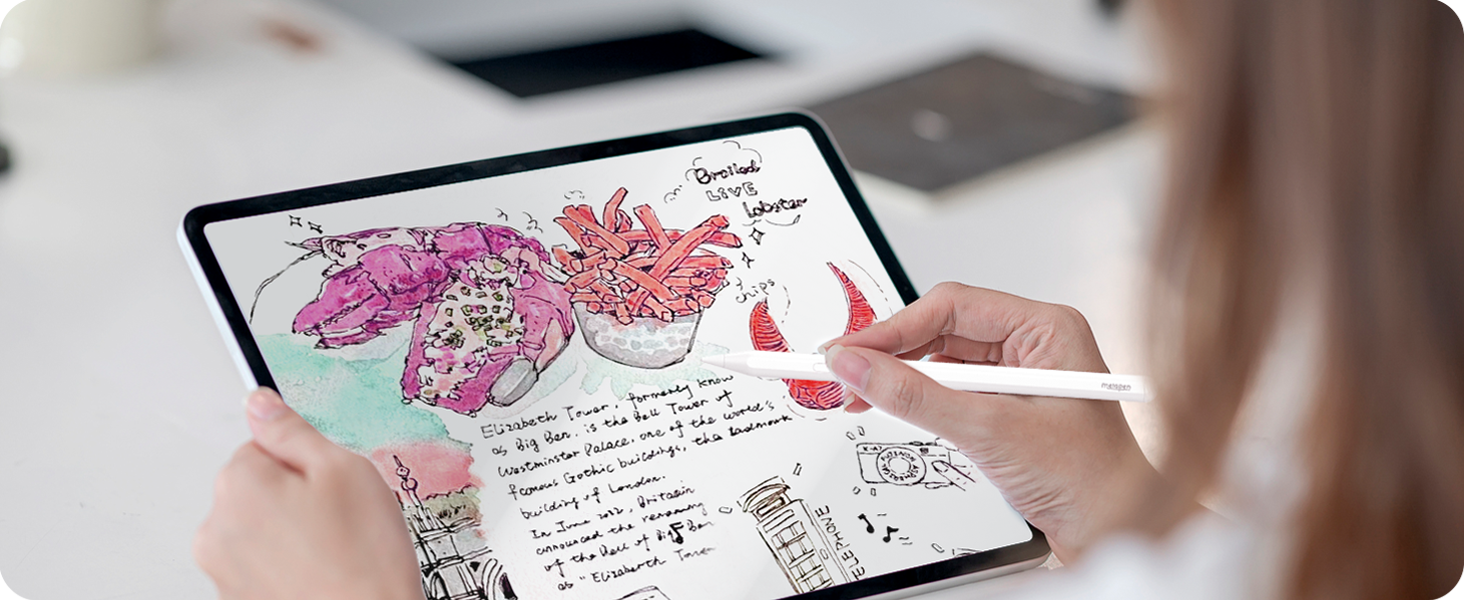 Broiled
LIVE
lobster
chips
Elizabeth Tower, formerly know
as Big Ben. is the Bell Tower of
Westminster Palace. one of the world's
famous Gothic buildings, the landmark
building of London.
In June 2012, Britain
announced the renaming
of the Bell of Big Ben
as "Elizabeth Tower
TELEPHONE